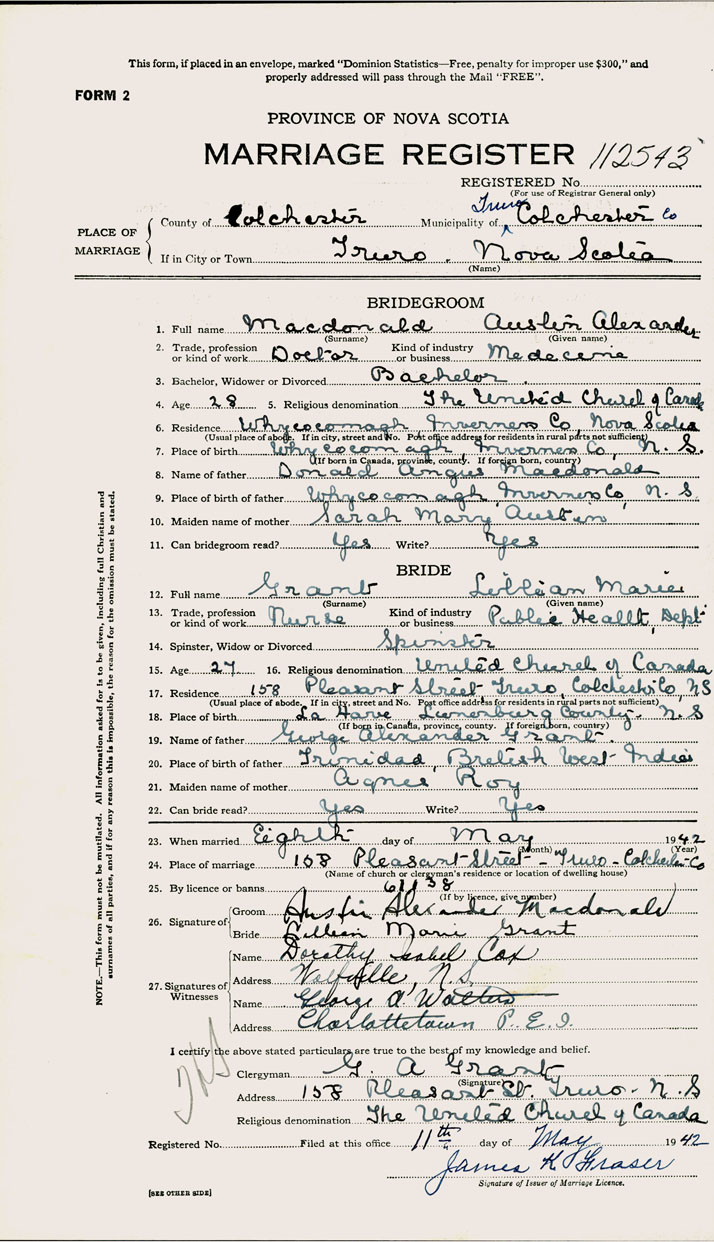 This form, if placed in an envelope, marked "Dominion Statistics—Free, penalty for improper use $300," and
properly addressed will pass through the Mail "FREE".
FORM 2
PROVINCE OF NOVA SCOTIA
MARRIAGE REGISTER 112543
REGISTERED No.
(For use of Registrar General only)
PLACE OF MARRIAGE
County of Colchester Municipality of Truro Colchester Co
If in City or Town Truro, Nova Scotia
(Name)
BRIDEGROOM
1. Full name Macdonald Austin Alexander
(Surname) (Given name)
2. Trade, profession or kind of work Doctor Kind of industry or business Medecine
3. Bachelor, Widower or Divorced Bachelor.
4. Age 28 5. Religious denomination The United Church of Canada
6. Residence Whycocomagh, Inverness Co, Nova Scotia
(Usual place of abode. If in city, street and No. Post office address for residents in rural parts not sufficient)
7. Place of birth Whycocomagh, Inverness Co, N. S.
(If born in Canada, province, county. If foreign born, country)
8. Name of father Donald Angus Macdonald
9. Place of birth of father Whycocomagh, Inverness Co, N. S.
10. Maiden name of mother Sarah Mary Austin
11. Can bridegroom read? Yes Write? Yes
BRIDE
12. Full name Grant Lillian Marie
(Surname) (Given name)
13. Trade, profession or kind of work Nurse Kind of industry or business Public Health Dept
14. Spinster, Widow or Divorced Spinster
15. Age 27 16. Religious denomination United Church of Canada
17. Residence 158 Pleasant Street, Truro, Colchester Co, NS
(Usual place of abode. If in city, street and No. Post office address for residents in rural parts not sufficient)
18. Place of birth La Have Lunenburg County. N. S
(If born in Canada, province, county. If foreign born, country)
19. Name of father George Alexander Grant
20. Place of birth of father Trinidad, British West Indies
21. Maiden name of mother Agnes Roy
22. Can bride read? Yes Write? Yes
23. When married Eighth day of May 1942
(Month) (Year)
24. Place of marriage 158 Pleasant Street - Truro - Colchester Co
(Name of church or clergyman's residence or location of dwelling house)
25. By licence or banns 61138
(If by licence, give number)
26. Signature of
Groom Austin Alexander Macdonald
Bride Lillian Marie Grant
27. Signatures of Witnesses
Name Dorothy Isabel Cox
Address Wolfville, N.S.
Name George A Walters
Address Charlottetown P.E.I.
I certify the above stated particulars are true to the best of my knowledge and belief.
Clergyman G. A Grant
(Signature)
Address 158 Pleasant St. Truro - N. S
Religious denomination The United Church of Canada
Registered No. Filed at this office 11th day of May 1942
James K Fraser
Signature of Issuer of Marriage Licence.
[SEE OTHER SIDE]
NOTE.—This form must not be mutilated. All information asked for is to be given, including full Christian and
surnames of all parties, and if for any reason this is impossible, the reason for the omission must be stated.